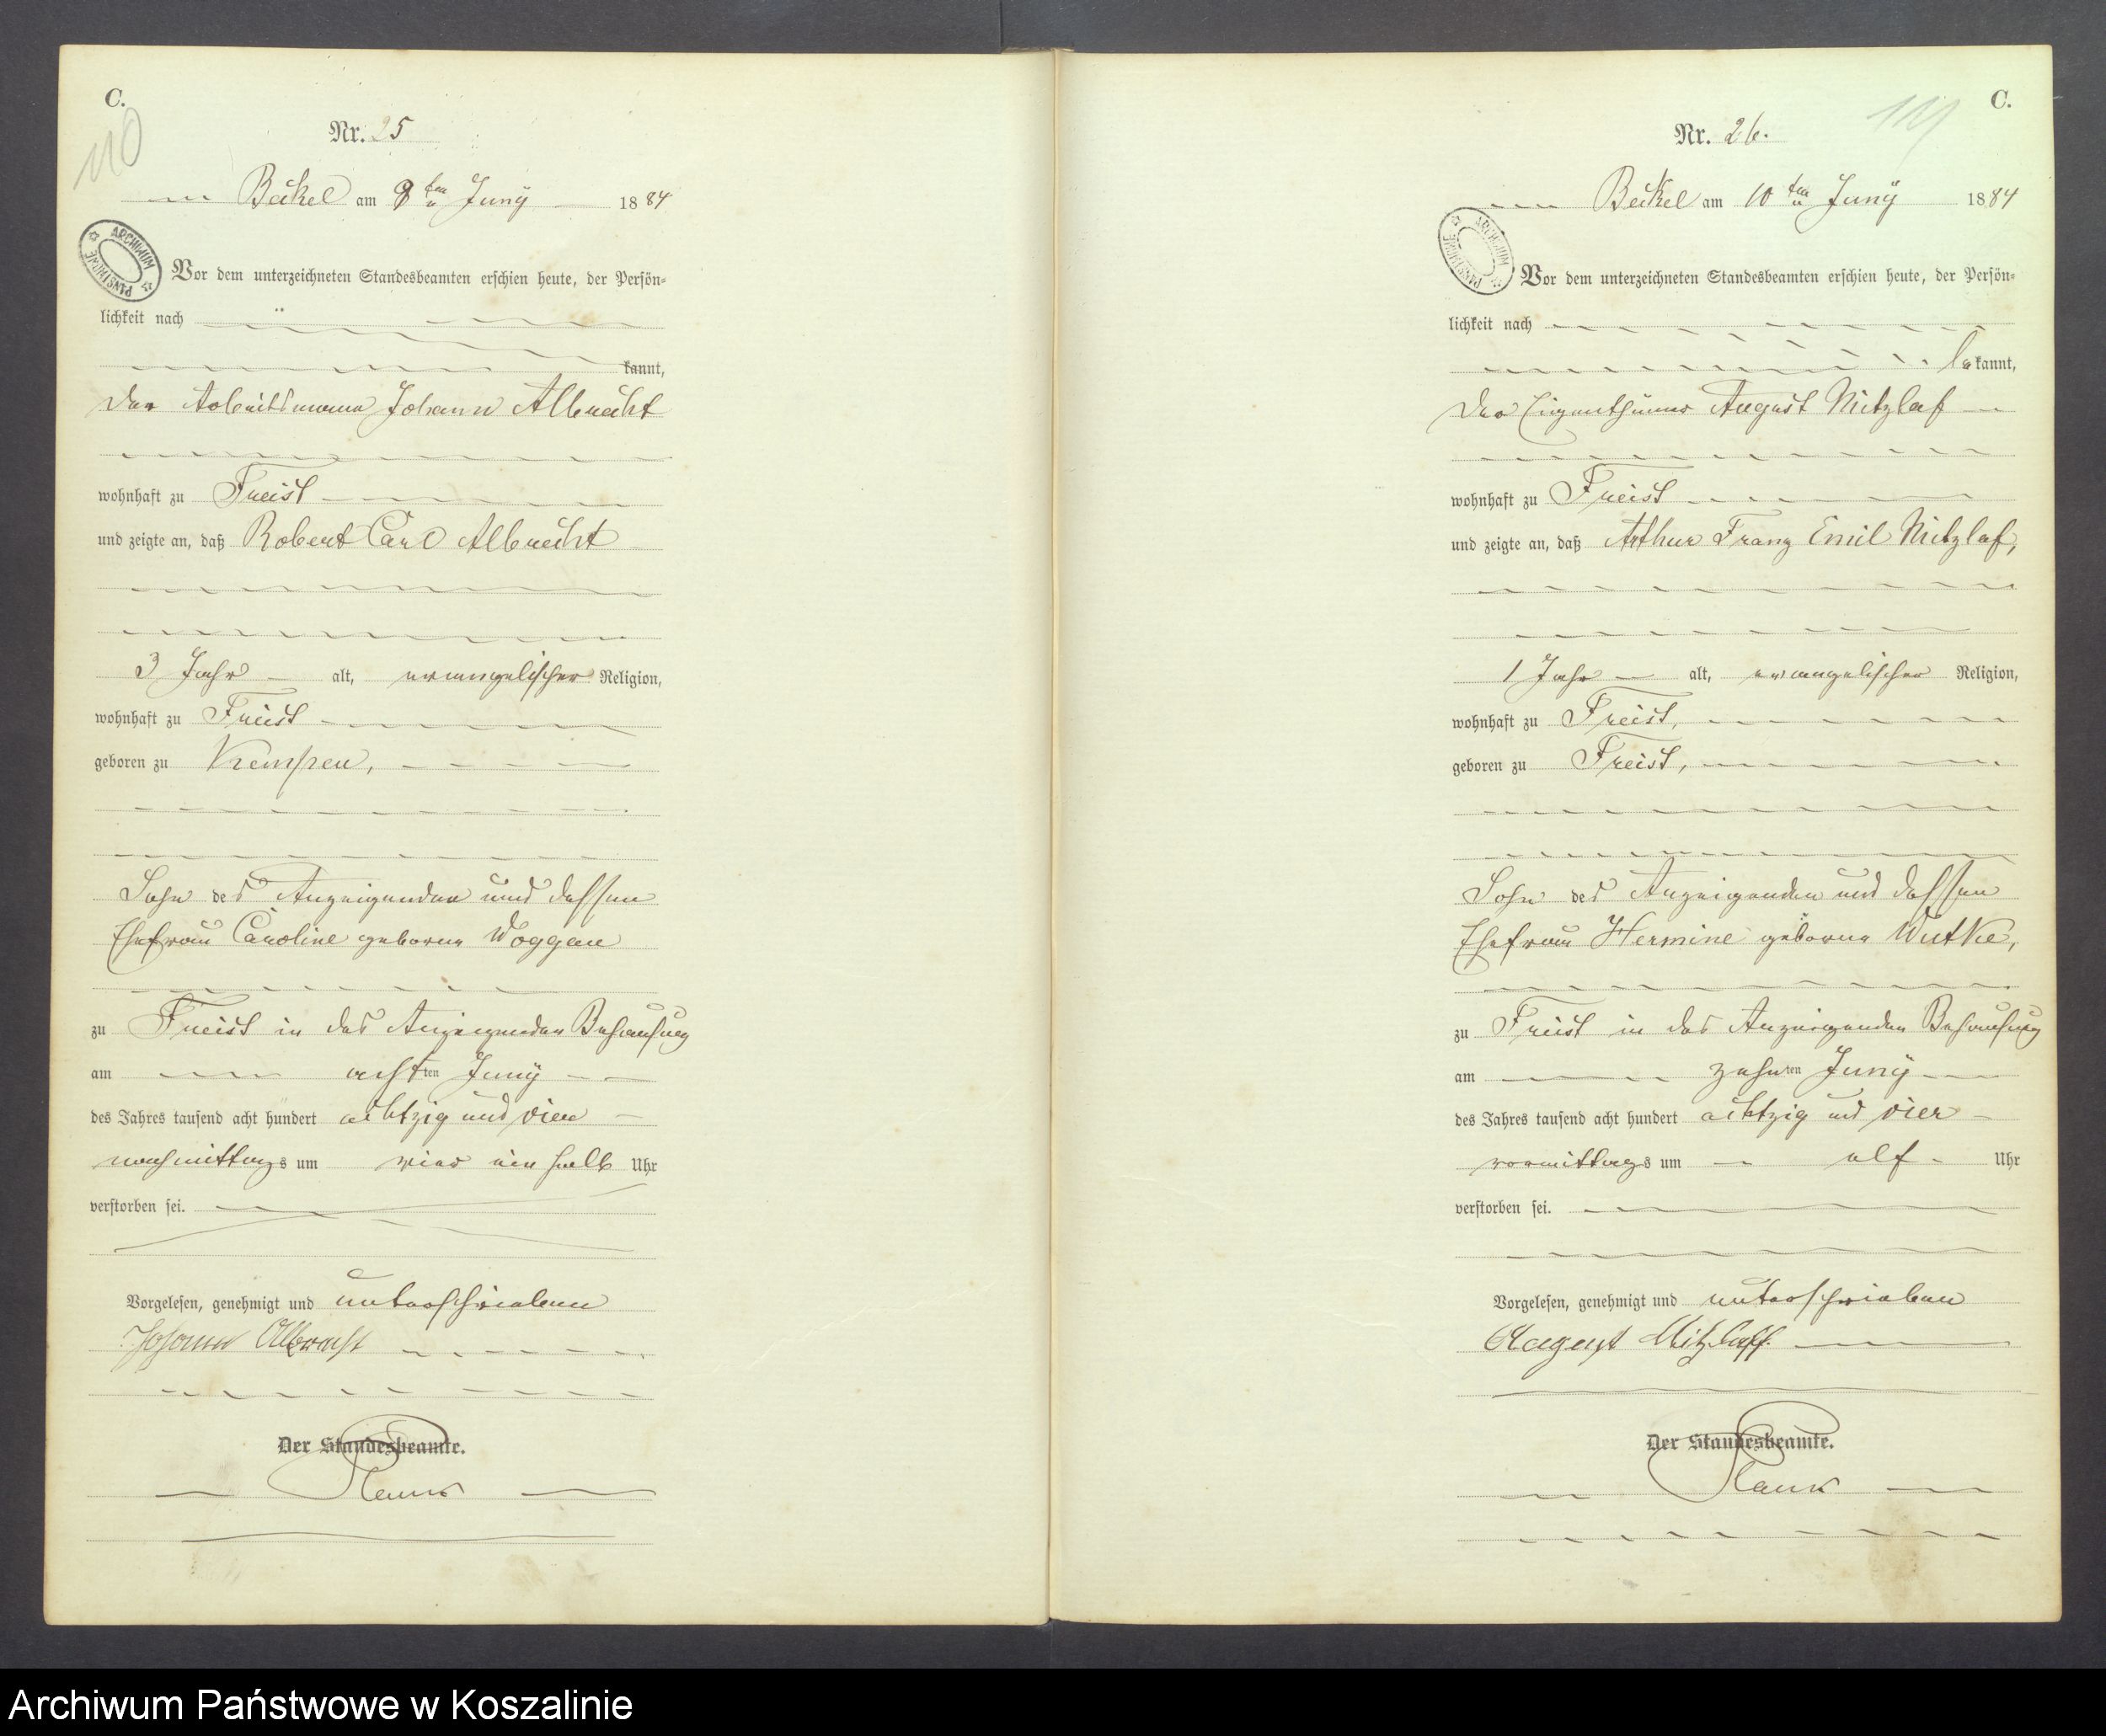 C.
110
Nr. 25
Beckel am 8ten Juny 1884
ARCHIWUM PAŃSTWOWE
Vor dem unterzeichneten Standesbeamten erschien heute, der Persön-
lichkeit nach
kannt,
der Arbeitsmann Johann Albrecht
wohnhaft zu Freist
und zeigte an, daß Robert Carl Albrecht
3 Jahr alt, evangelischer Religion,
wohnhaft zu Freist
geboren zu Kempen,
Sohn des Anzeigenden und dessen
Ehefrau Caroline geborne Woggan
zu Freist in des Anzeigenden Behausung
am achtten Juny
des Jahres tausend acht hundert achtzig und vier
nachmittags um vier ein halb Uhr
verstorben sei.
Vorgelesen, genehmigt und unterschrieben
Johann Albrecht
Der Standesbeamte.
C.
Nr. 26.
Beckel am 10ten Juny 1884
ARCHIWUM PAŃSTWOWE
Vor dem unterzeichneten Standesbeamten erschien heute, der Persön-
lichkeit nach
bekannt,
der Eigenthümer August Mitzlaf
wohnhaft zu Freist
und zeigte an, daß Arthur Franz Emil Mitzlaf,
1 Jahr alt, evangelischer Religion,
wohnhaft zu Freist,
geboren zu Freist,
Sohn des Anzeigenden und dessen
Ehefrau Hermine geborne Wutke,
zu Freist in des Anzeigenden Behausung
am zehnten Juny
des Jahres tausend acht hundert achtzig und vier
vormittags um elf Uhr
verstorben sei.
Vorgelesen, genehmigt und unterschrieben
August Mitzlaff.
Der Standesbeamte.
Archiwum Państwowe w Koszalinie